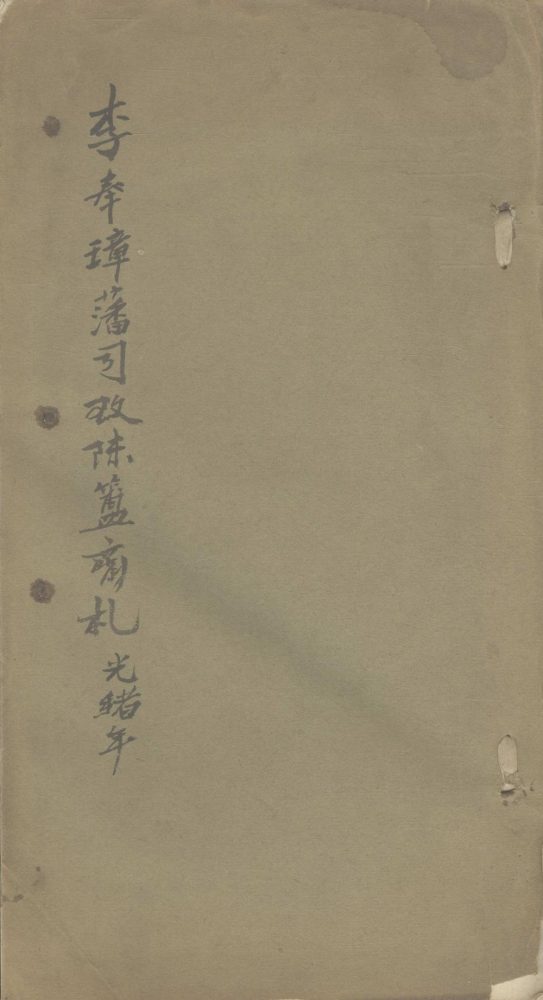 李奉璋藩司致陈簠斋札 光緒年